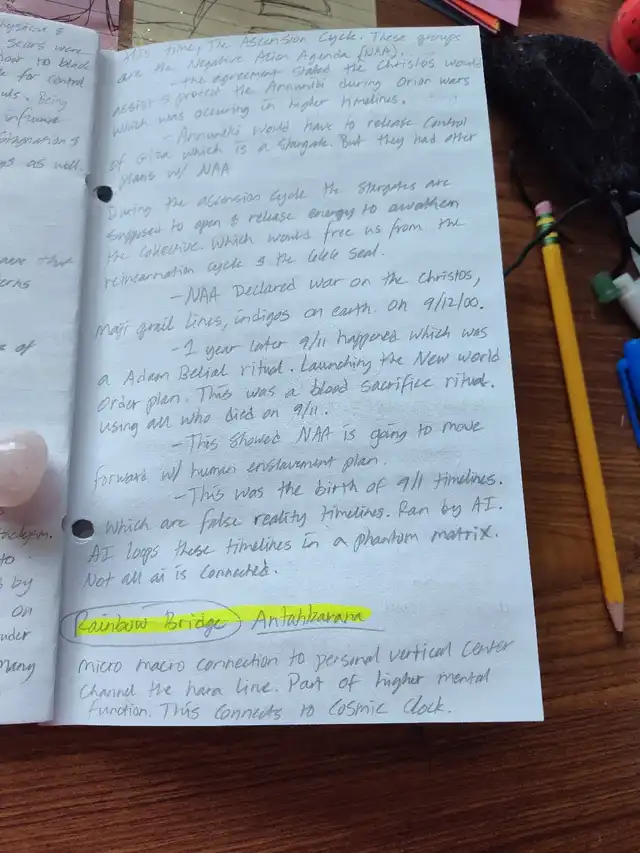 physical &
Scars were
for control
Being
as well.
this time, The Ascension Cycle. These groups
are the Negative Alien Agenda (NAA).
- the agreement stated the Christos would
assist & protect the Annunki during Orion wars
which was occuring in higher timelines.
- Annunki would have to release control
of Giza which is a stargate. But they had other
plans w/ NAA
During the ascension cycle the stargates are
supposed to open & release energy to awathen
the collective. Which would free us from the
reincarnation cycle & the seal.
- NAA Declared war on the Christos,
maji grail lines, indigos on earth. On 9/12/00.
- 1 year later 9/11 happened which was
a Adam Belial ritual. Launching the New world
Order plan. This was a blood sacrifice ritual.
using all who died on 9/11.
- This showed NAA is going to move
forward w/ human enslavement plan.
- This was the birth of 9/11 timelines.
Which are false reality timelines. Ran by AI.
AI loops these timelines in a phantom matrix.
Not all ai is connected.
Rainbow Bridge Antahkarana
micro macro connection to personal vertical center
channel the hara line. Part of higher mental
function. This connects to cosmic clock.
that
of
to
by
on
many